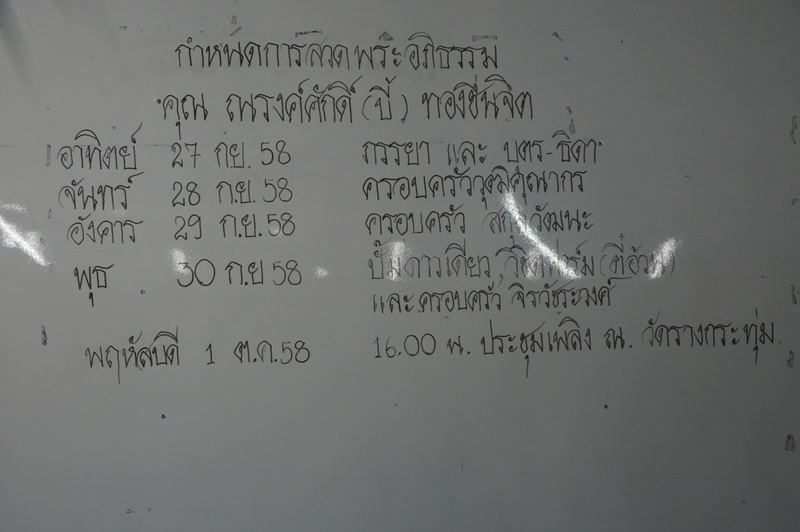 กำหนดการสวดพระอภิธรรม
คุณ ณรงค์ศักดิ์ (ปี้) ทองชื่นจิต
อาทิตย์ 27 ก.ย. 58 ภรรยา และ บุตร-ธิดา
จันทร์ 28 ก.ย. 58 ครอบครัววุฒิคุณากร
อังคาร 29 ก.ย. 58 ครอบครัว
พุธ 30 ก.ย 58 ปั๊มดาวเดียว, (ตี๋อ้วน)
และ ครอบครัว จิรวัชระวงศ์
พฤหัสบดี 1 ต.ค. 58 16.00 น. ประชุมเพลิง ณ. วัดรางกระทุ่ม.